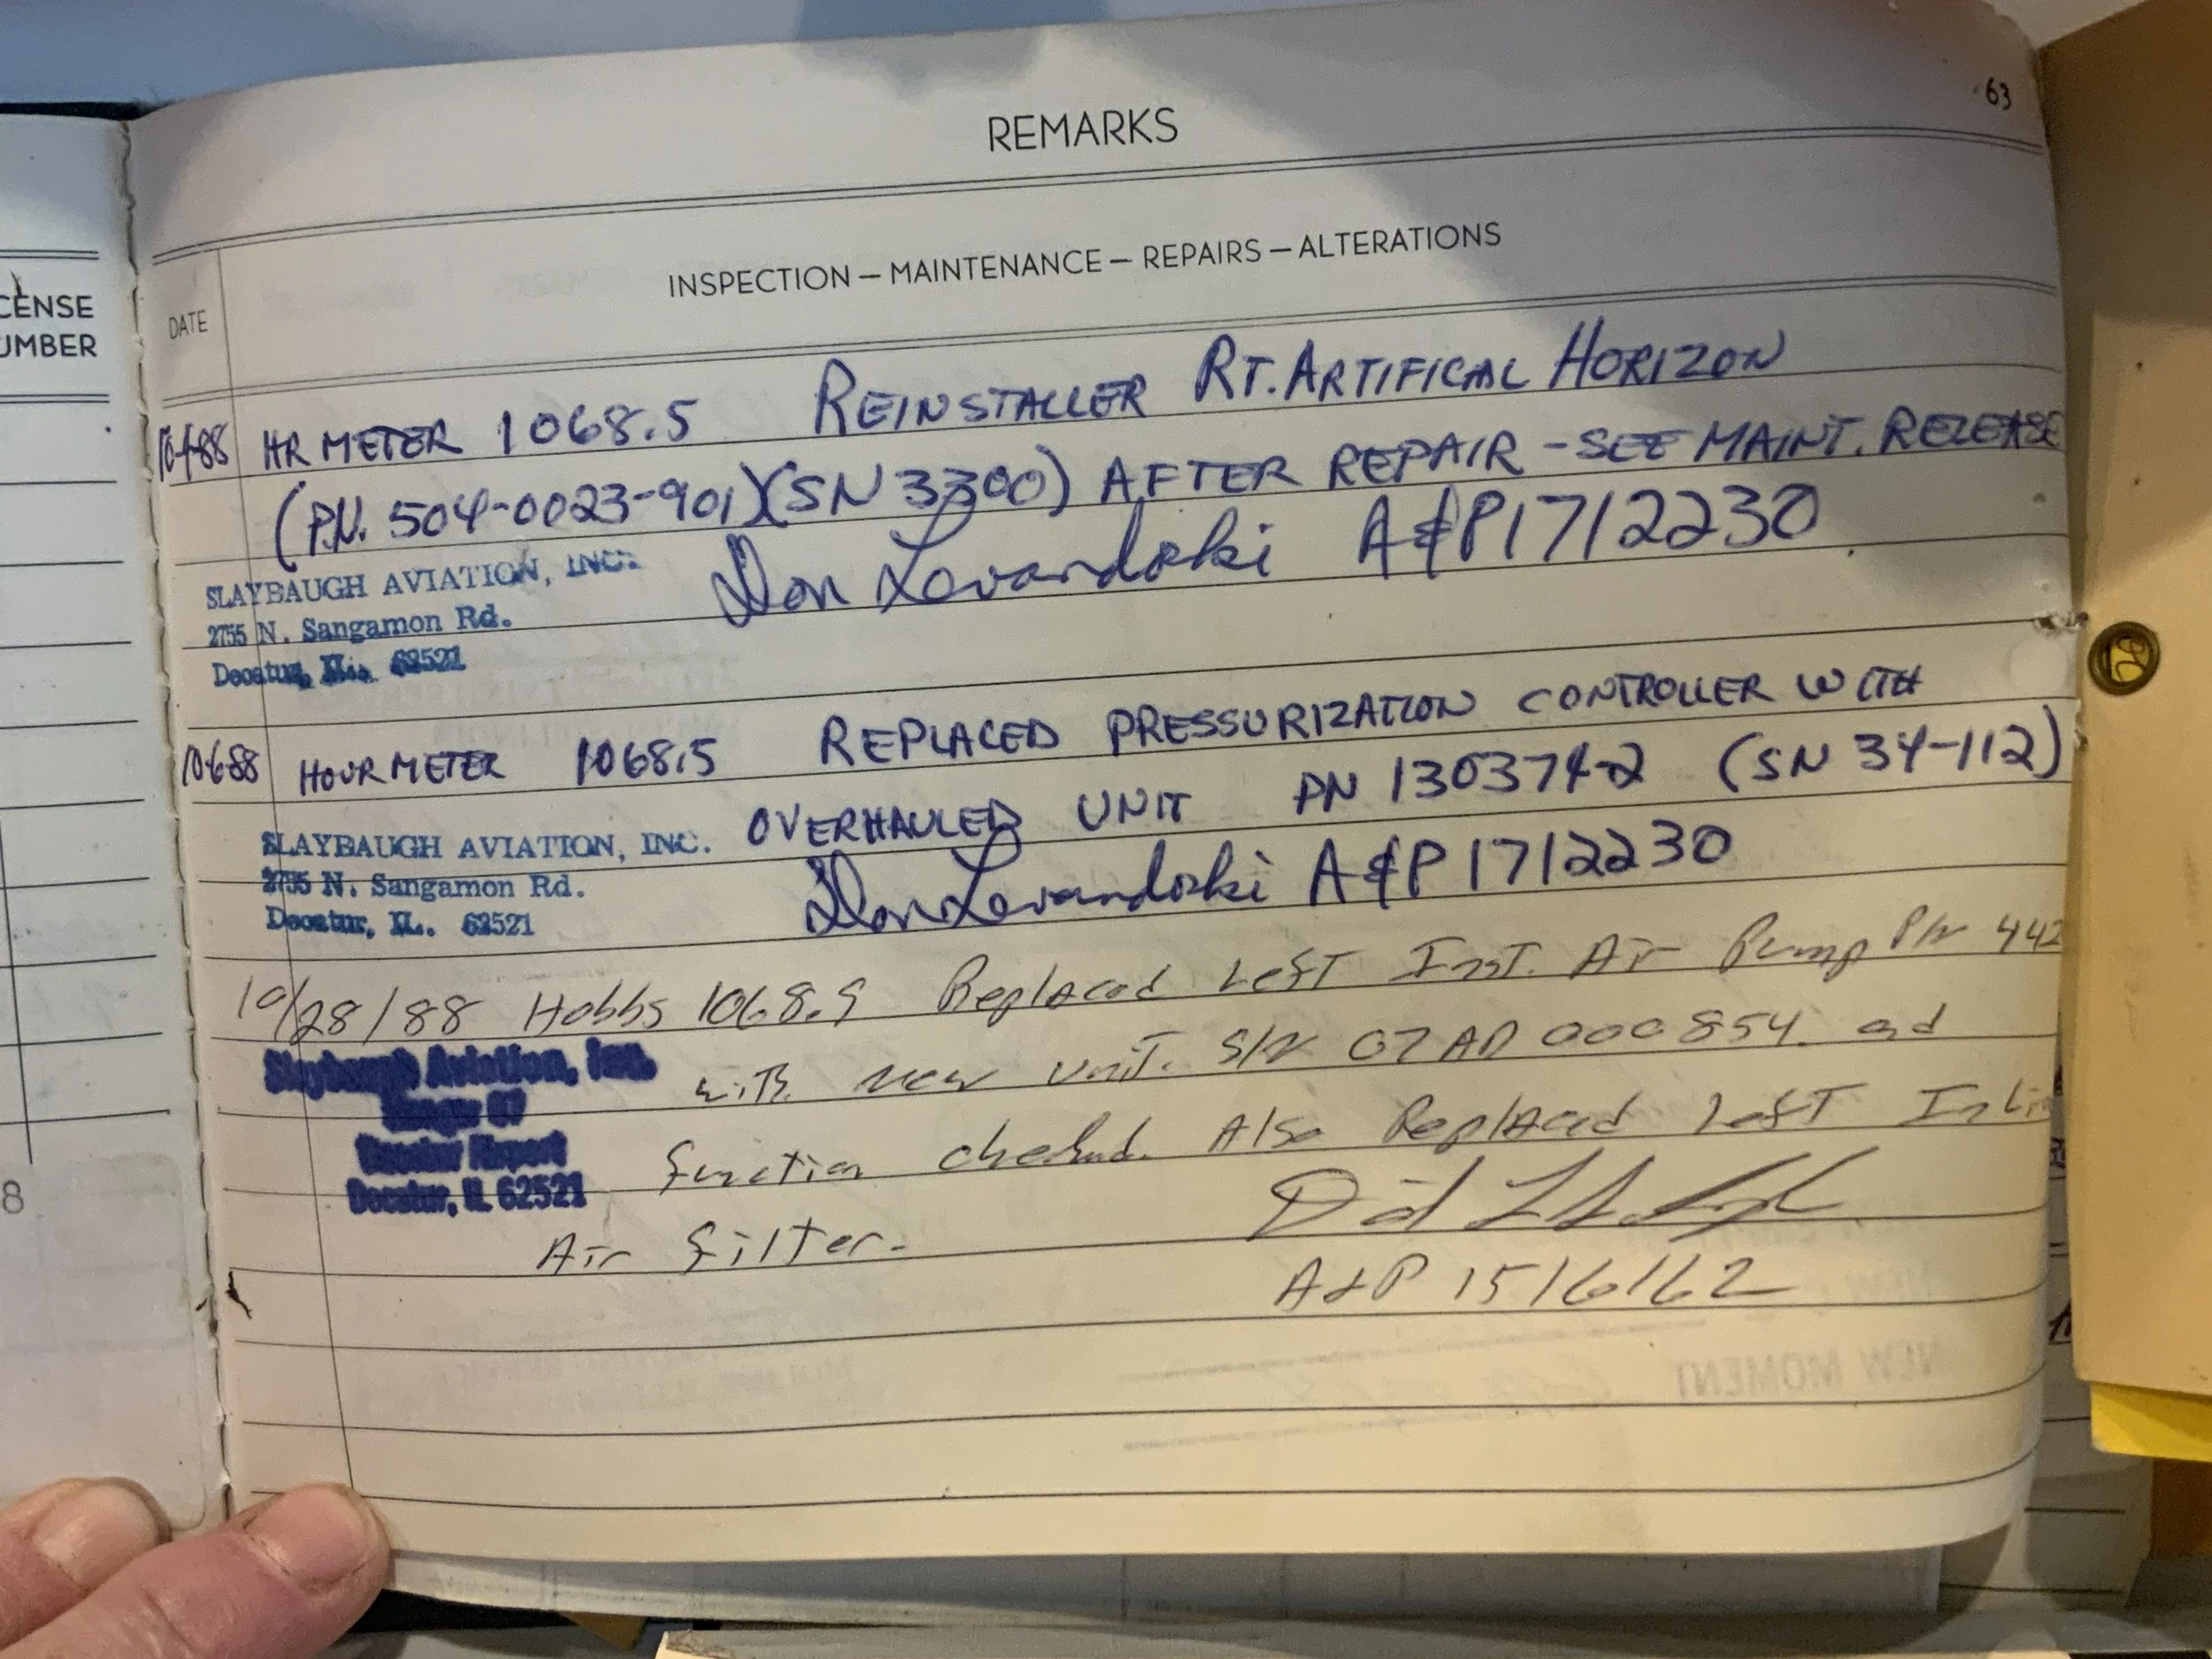 63
REMARKS
INSPECTION — MAINTENANCE — REPAIRS — ALTERATIONS
CENSE
UMBER
DATE
HR METER 1068.5 REINSTALLED RT. ARTIFICAL HORIZON
(P.N. 504-0023-901)(SN 3300) AFTER REPAIR - SEE MAINT. RELEASE
Don Levandoski A&P 1712230
SLAYBAUGH AVIATION, INC.
2755 N. Sangamon Rd.
Decatur, IL. 62521
10-6-88 HOUR METER 1068.5 REPLACED PRESSURIZATION CONTROLLER WITH
OVERHAULED UNIT PN 130374-2 (SN 34-112)
SLAYBAUGH AVIATION, INC.
2755 N. Sangamon Rd.
Decatur, IL. 62521
Don Levandoski A&P 1712230
10/28/88 Hobbs 1068.9 Replaced Left Inst. Air Pump P/N 442
with new unit. S/N 07AD000854 and
Slaybaugh Aviation, Inc.
Decatur Airport
Decatur, IL 62521
function checked. Also Replaced Left Inli
Air filter.
A&P 1516162
8
NEW MOMENT